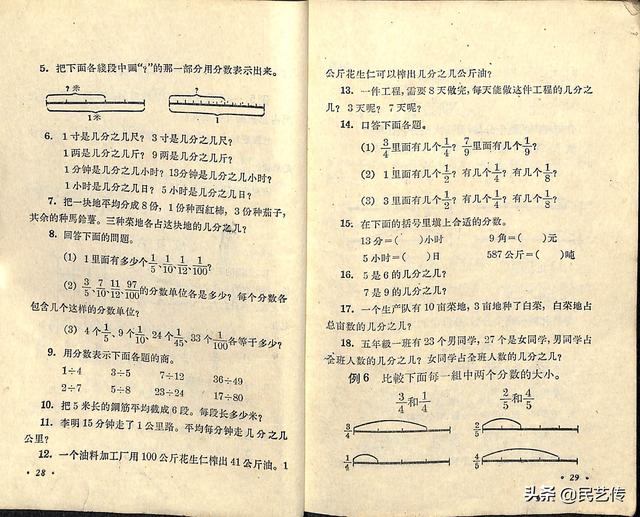 5. 把下面各綫段中画“?”的那一部分用分数表示出来。
?米
1米
?
1
6. 1寸是几分之几尺? 3寸是几分之几尺?
1两是几分之几斤? 9两是几分之几斤?
1分钟是几分之几小时? 13分钟是几分之几小时?
1小时是几分之几日? 5小时是几分之几日?
7. 把一块地平均分成8份, 1份种西紅柿, 3份种茄子,
其余的种馬鈴薯。三种菜地各占这块地的几分之几?
8. 回答下面的問題。
(1) 1里面有多少个1/5、1/10、1/12、1/100?
(2) 3/5、7/10、11/12、97/100的分数单位各是多少? 每个分数各
包含几个这样的分数单位?
(3) 4个1/5、9个1/10、24个1/45、33个1/100各等于多少?
9. 用分数表示下面各题的商。
1÷4 3÷5 7÷12 36÷49
2÷7 5÷8 23÷24 17÷80
10. 把5米长的鋼筋平均截成6段。每段长多少米?
11. 李明15分钟走了1公里路。平均每分钟走几分之几
公里?
12. 一个油料加工厂用100公斤花生仁榨出41公斤油。1
· 28 ·
公斤花生仁可以榨出几分之几公斤油?
13. 一件工程, 需要8天做完, 每天能做这件工程的几分之
几? 3天呢? 7天呢?
14. 口答下面各题。
(1) 3/4里面有几个1/4? 7/9里面有几个1/9?
(2) 1里面有几个1/2? 有几个1/4? 有几个1/8?
(3) 3里面有几个1/2? 有几个1/4? 有几个1/8?
15. 在下面的括号里填上合适的分数。
13分=( )小时 9角=( )元
5小时=( )日 587公斤=( )吨
16. 5是6的几分之几?
7是9的几分之几?
17. 一个生产队有10亩菜地, 3亩地种了白菜, 白菜地占
总亩数的几分之几?
18. 五年級一班有23个男同学, 27个是女同学, 男同学占
全班人数的几分之几? 女同学占全班人数的几分之几?
例6 比較下面每一組中两个分数的大小。
3/4和1/4 2/5和4/5
3/4 2/5
1/4 4/5
· 29 ·
头条 @民艺传